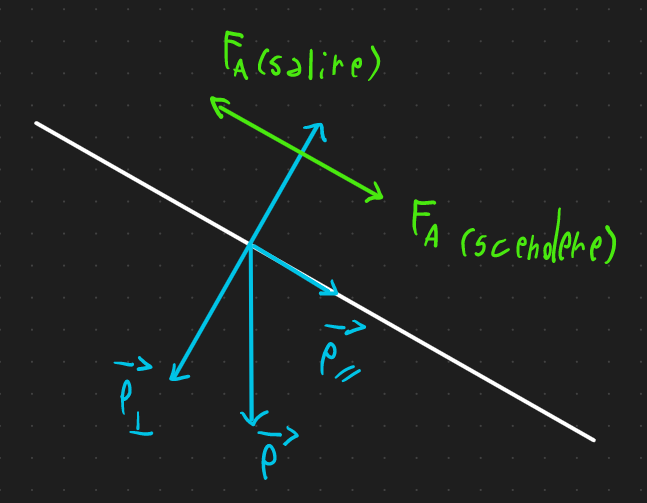 F_A (salire)
F_A (scendere)
P⃗_//
P⃗_⊥
P⃗